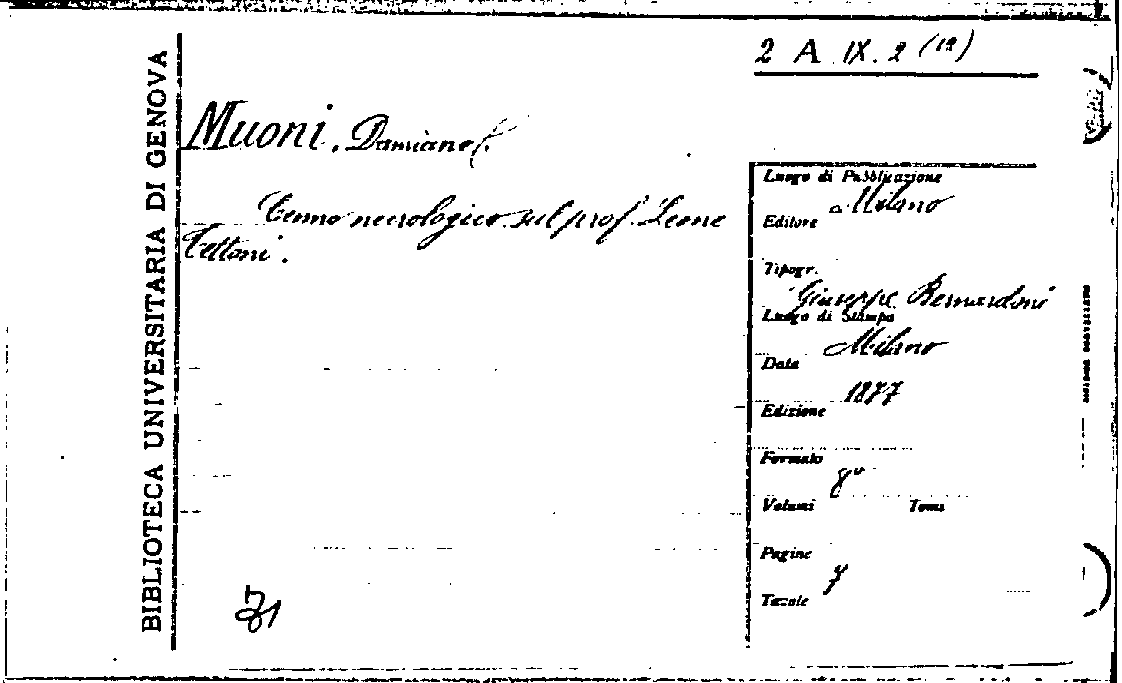 BIBLIOTECA UNIVERSITARIA DI GENOVA
2 A IX. 2 (12)
Muoni, Damiano
Cenno necrologico sul prof. Leone
Tettoni.
Luogo di Pubblicazione
Milano
Editore
Tipogr.
Giuseppe Bernardoni
Luogo di Stampa
Milano
Data
1877
Edizione
Formato
8°
Volumi Tomi
Pagine
7
Tavole